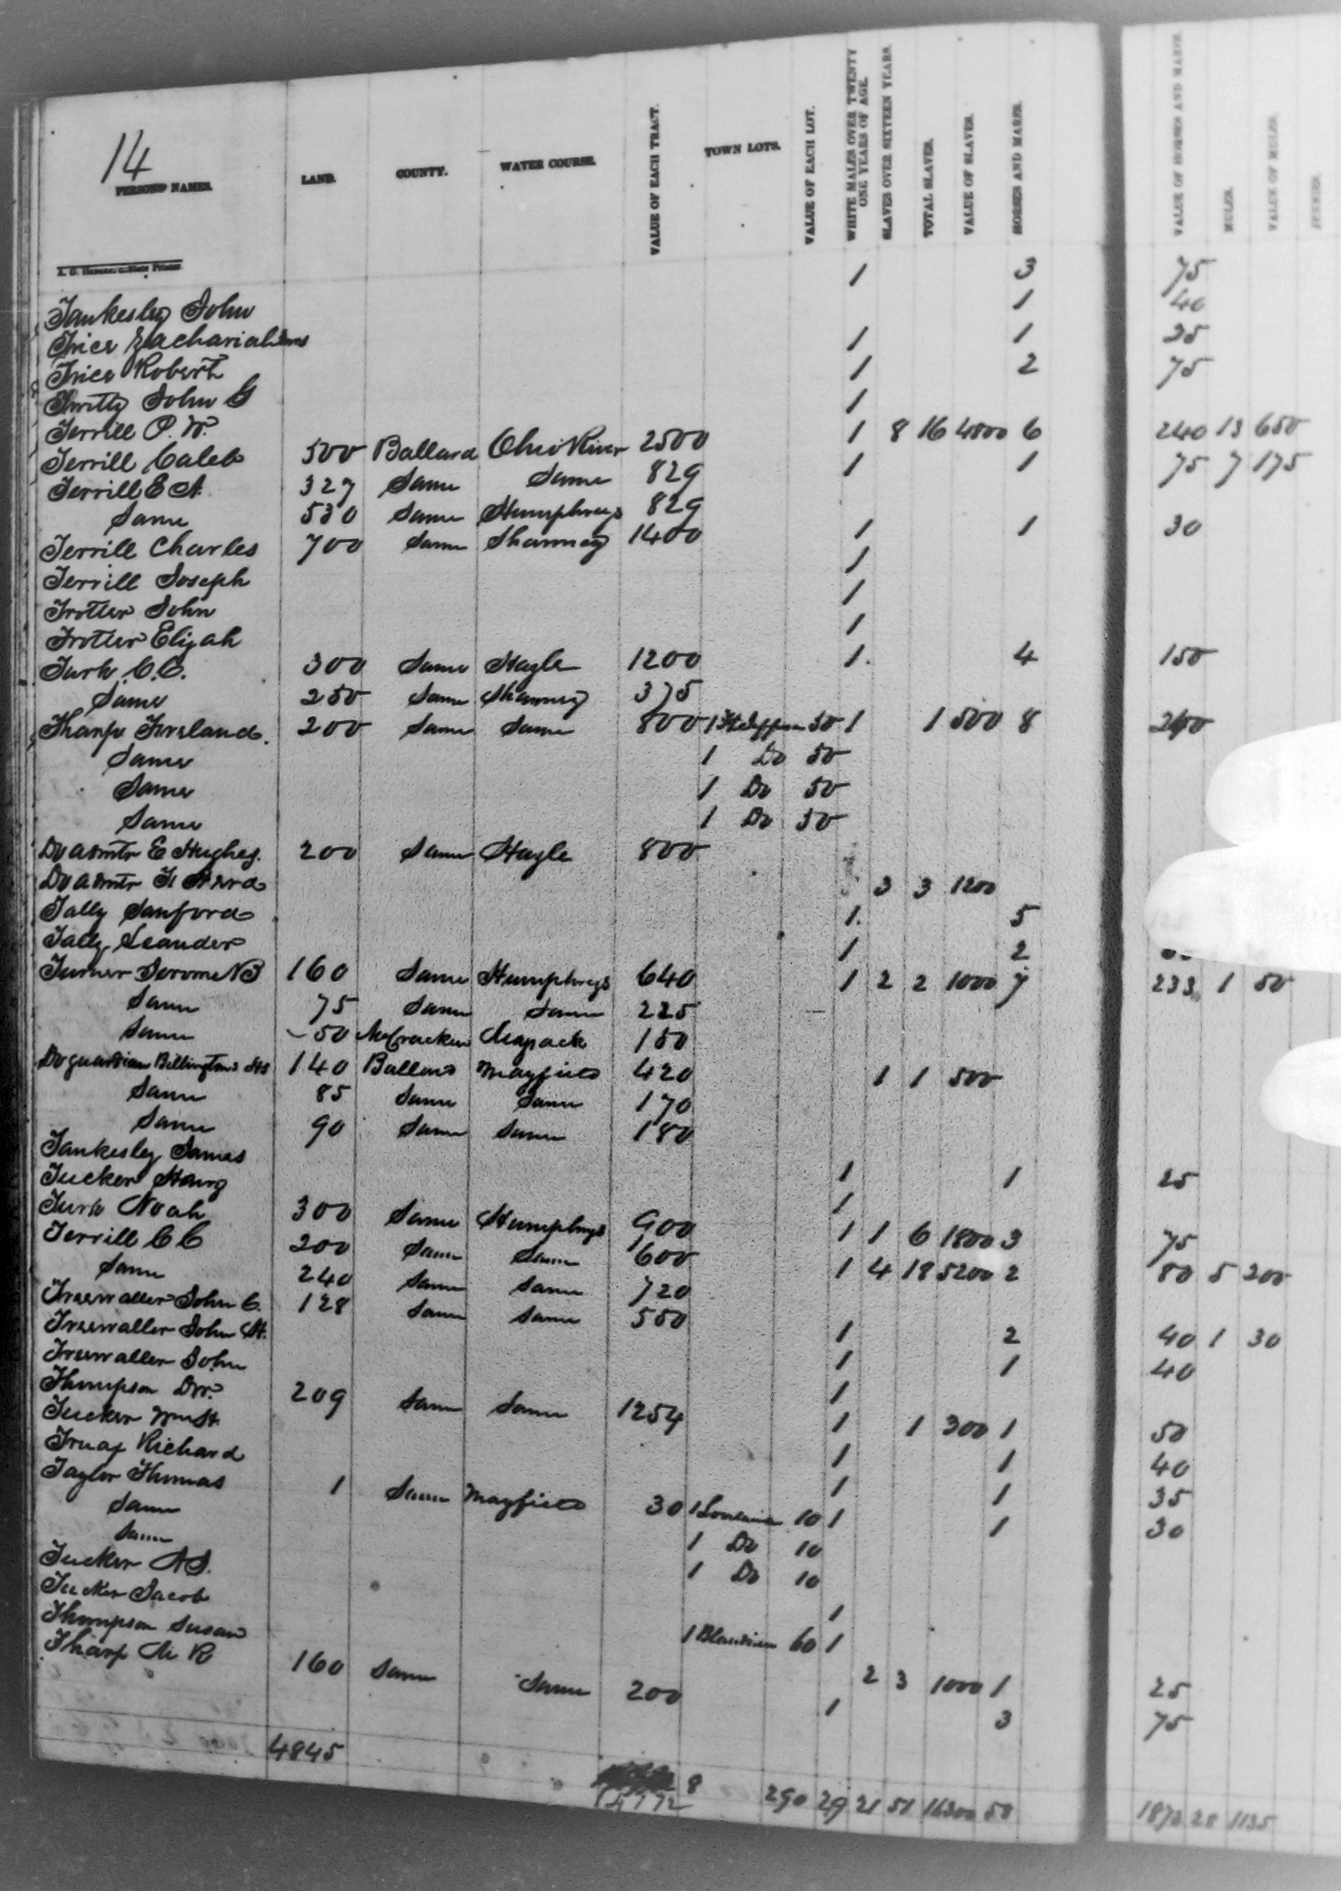 14
PERSONS' NAMES. LAND. COUNTY. WATER COURSE. VALUE OF EACH TRACT. TOWN LOTS. VALUE OF EACH LOT. WHITE MALES OVER TWENTY ONE YEARS OF AGE. SLAVES OVER SIXTEEN YEARS. TOTAL SLAVES. VALUE OF SLAVES. HORSES AND MARES. VALUE OF HORSES AND MARES. MULES. VALUE OF MULES.
State Printer.
Tankesley John 1 3 75
Trice Zachariah 1 40
Trice Robert 1 1 25
John G 1 2 75
Terrill P. W. 1
Terrill Caleb 500 Ballard Ohio River 2500 1 8 16 4800 6 240 13 650
Terrill E A. 327 Same Same 829 1 1 75 7 175
Same 530 Same Humphreys 829
Terrill Charles 700 Same Shawney 1400 1 1 30
Terrill Joseph 1
Trotter John 1
Trotter Elijah 1
Turk C. C. 300 Same Hazle 1200 1 4 150
Same 250 Same Shawney 375
Tharp 200 Same Same 800 1 50 1 1 500 8
Same 1 Do 50
Same 1 Do 50
Same 1 Do 50
Do admtr E Hughes. 200 Same Hazle 800
Do admtr 3 3 1200
Tally Sanford 1 5
Tally Leander 1 2
Turner Jerome N B 160 Same Humphreys 640 1 2 2 1000 7 233 1 50
Same 75 Same Same 225
Same 50 McCracken 150
Do guardian Billingtons 140 Ballard Mayfield 420 1 1 500
Same 85 Same Same 170
Same 90 Same Same 180
Tankesley James 1 1 25
Tucker 1
Turk Noah 300 Same Humphreys 900 1 1 6 1800 3 75
Terrill C C 200 Same Same 600 1 4 18 5200 2 80 5 200
Same 240 Same Same 720
Treewaller John C. 128 Same Same 550 1 2 40 1 30
Treewaller John H. 1 1 40
Treewaller John 1
Thompson Dr. 209 Same Same 1254 1 1 300 1 50
Tucker Wm H. 1 1 40
Truax Richard 1 1 35
Taylor Thomas 1 Same Mayfield 30 1 10 1 1 30
Same 1 Do 10
Same 1 Do 10
Tucker A S. 1
Tucker Jacob 1 60 1
Thompson Susan 2 3 1000 1 25
Tharp M R 160 Same Same 200 1 3 75
4845 8 290 29 21 51 16300 58 28 1135